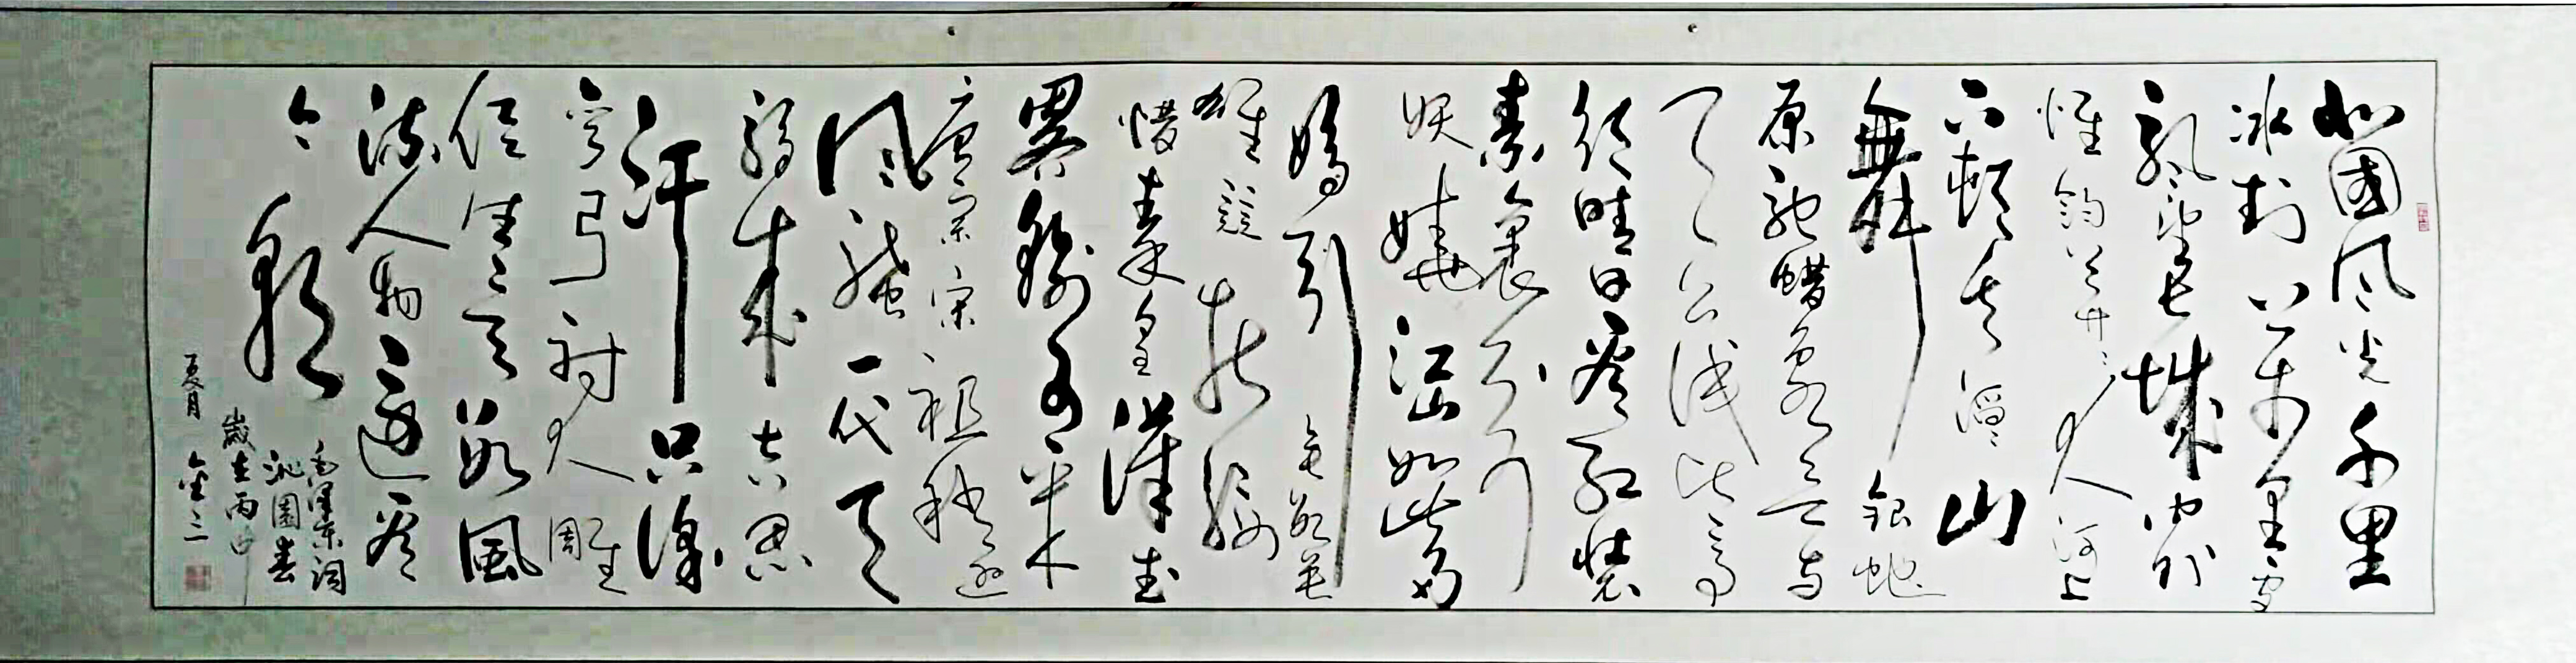 北國风光千里
冰封万里雪
飘望长城内外
惟馀莽莽大河上
下顿失滔滔山
舞银蛇
原驰蜡象欲与
天公试比高
须晴日看红装
素裹分外
妖娆江山如此多
娇引无数英
雄竞折腰
惜秦皇汉武
略输文采
唐宗宋祖稍逊
风骚一代天
骄成吉思
汗只识
弯弓射大雕
俱往矣数风
流人物还看
今朝
毛泽东词
沁園春
歲在丙申
夏月